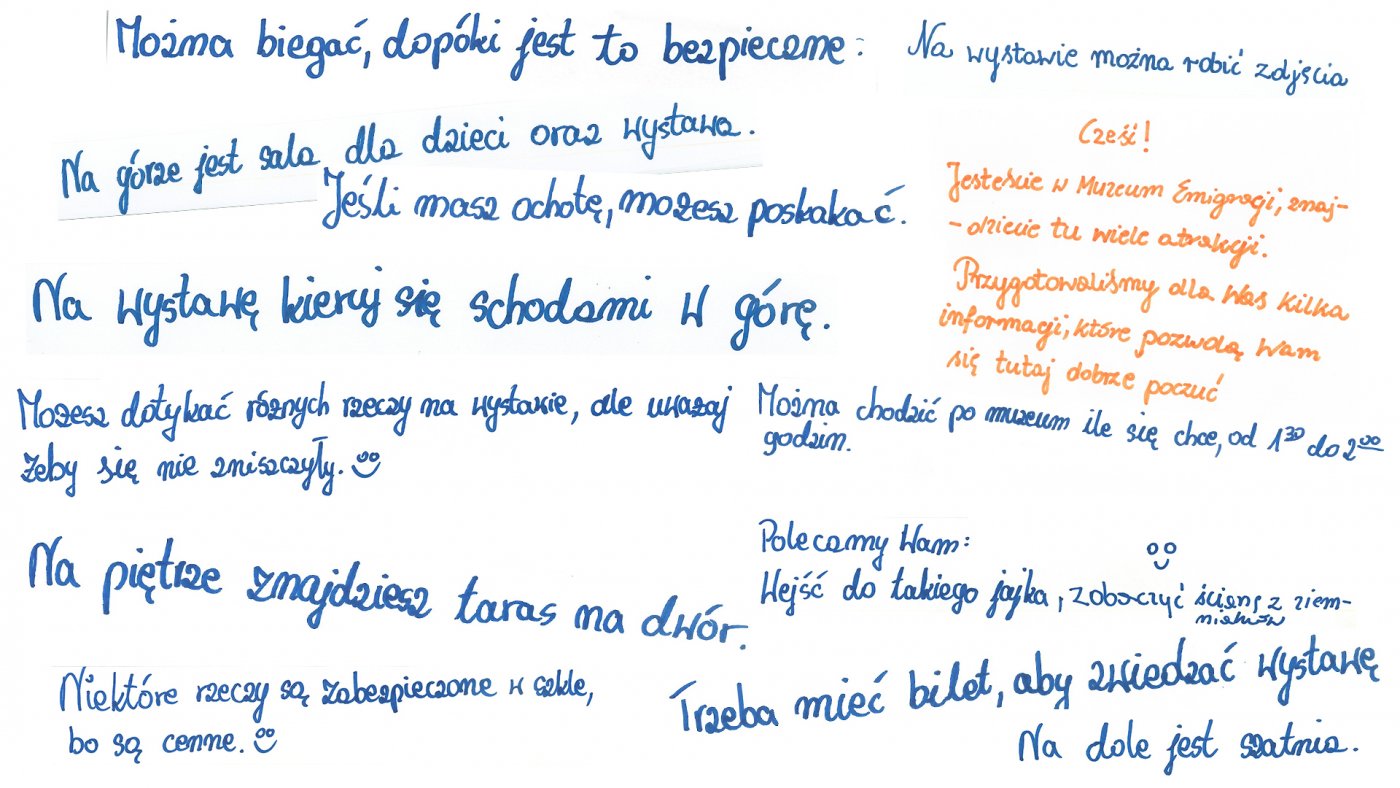 Można biegać, dopóki jest to bezpieczne:
Na wystawie można robić zdjęcia
Na górze jest sala dla dzieci oraz wystawa.
Jeśli masz ochotę, możesz poskakać.
Cześć!
Jesteście w Muzeum Emigragi, znaj-
-dziecie tu wiele atrakcji.
Przygotowaliśmy dla Was kilka
informacji, które pozwolą Wam
się tutaj dobrze poczuć
Na wystawę kieruj się schodami w górę.
Możesz dotykać różnych rzeczy na wystawie, ale uważaj
żeby się nie zniszczyły.
Można chodzić po muzeum ile się chce, od 1³⁰ do 2⁰⁰
godzin.
Na piętrze znajdziesz taras na dwór.
Polecamy Wam:
Wejść do takiego jajka, zobaczyć ścianę z ziem-
niaków
Niektóre rzeczy są zabezpieczone w szkle,
bo są cenne.
Trzeba mieć bilet, aby zwiedzać wystawę
Na dole jest szatnia.